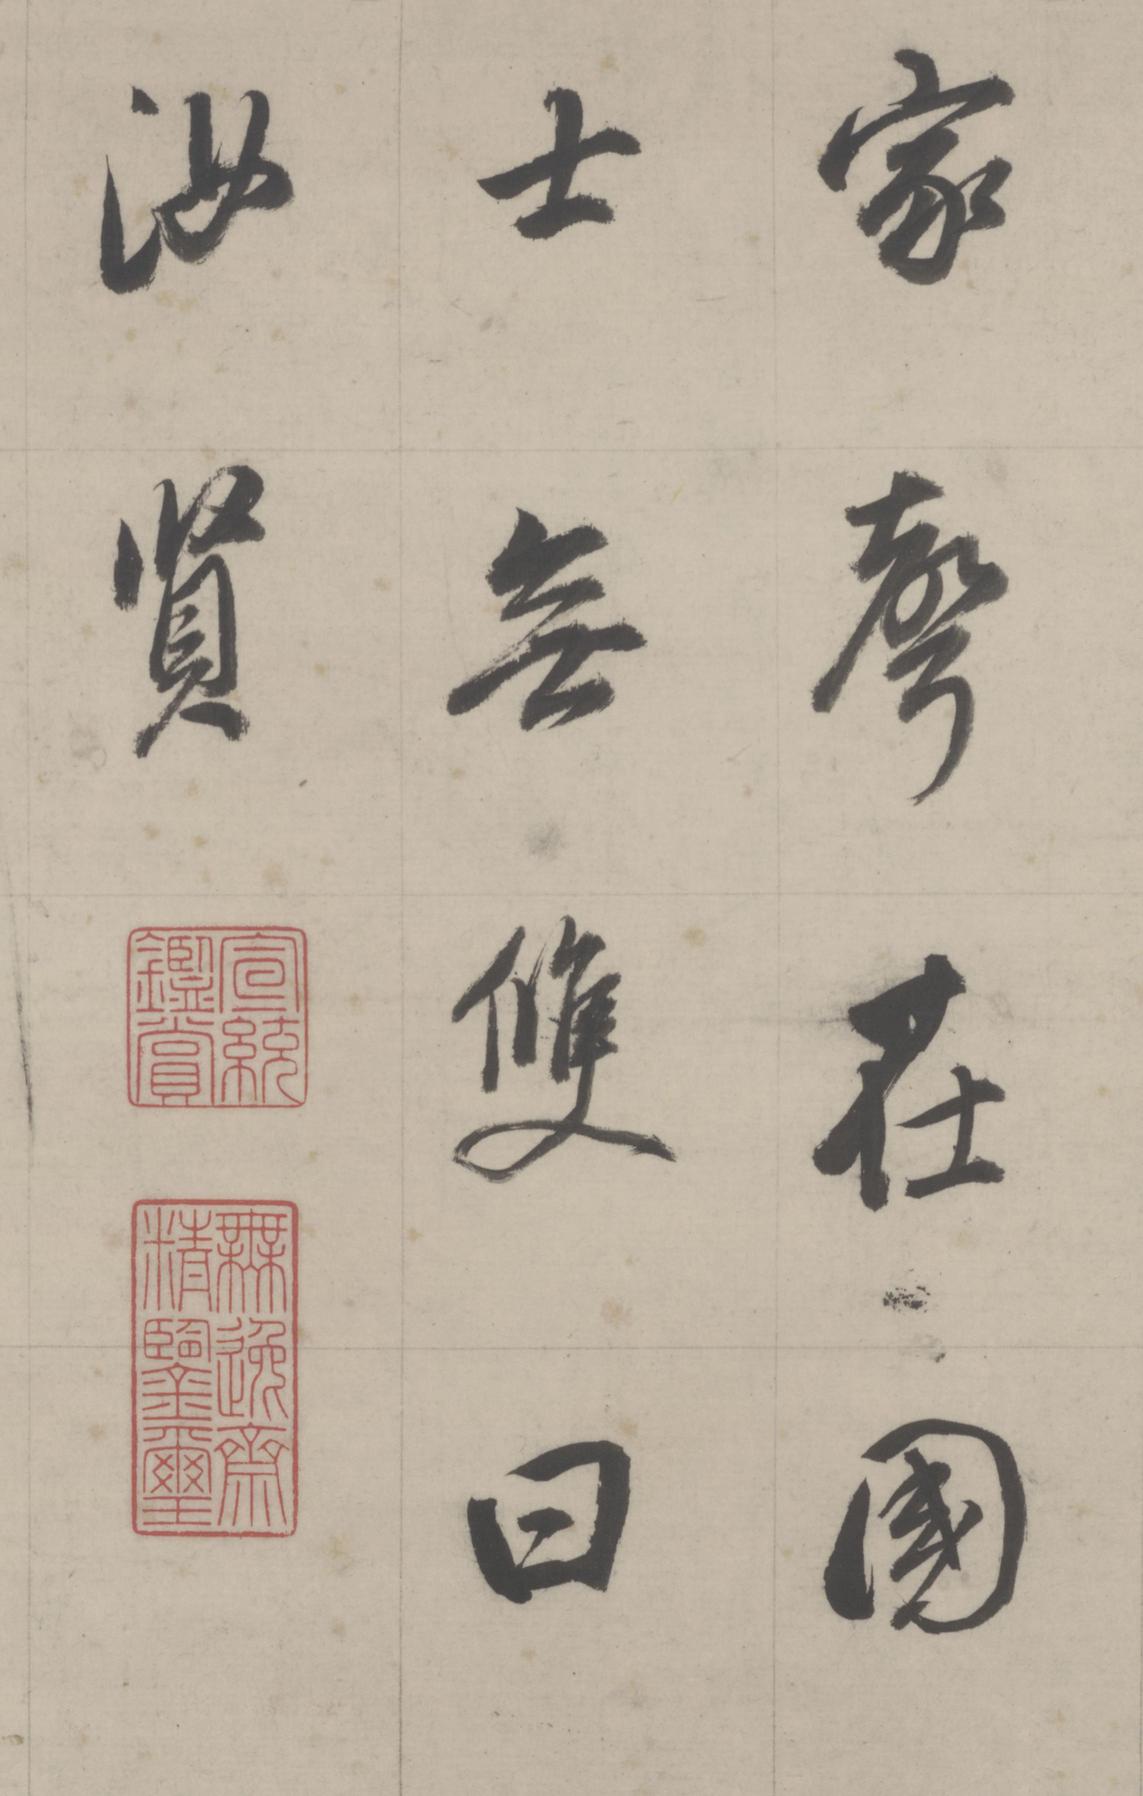 家聲在國
士無雙曰
汝賢
宣統
鑑賞
無逸齋
精鑒璽